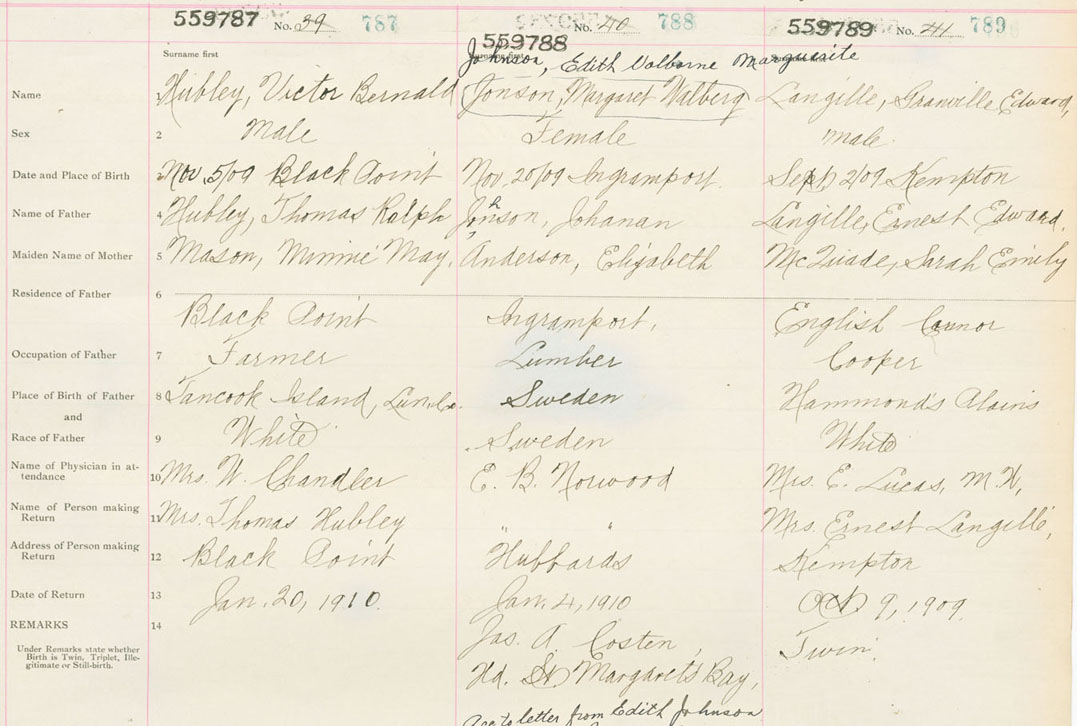 559787 No. 39 787
559788 No. 40 788
559789 No. 41 789
Surname first
Johnson, Edith Valborne Marguerite
Name Hubley, Victor Bernald Jonson, Margaret Walberg Langille, Granville Edward,
Sex 2 Male Female Male
Date and Place of Birth Nov. 5/09 Black Point Nov. 20/09 Ingramport. Sept 2/09 Kempton
Name of Father 4 Hubley, Thomas Ralph Johnson, Johanan Langille, Ernest Edward.
Maiden Name of Mother 5 Mason, Minnie May, Anderson, Elizabeth McQuade, Sarah Emily
Residence of Father 6
Black Point Ingramport, English Cornor
Occupation of Father 7 Farmer Lumber Cooper
Place of Birth of Father 8 Tancook Island, Lun. Co. Sweden Hammond's Plains
and
Race of Father 9 White Sweden White
Name of Physician in attendance 10 Mrs. W. Chandler E. B. Norwood Mrs. E. Lucas, M.W,
Name of Person making Return 11 Mrs. Thomas Hubley " " Mrs. Ernest Langille,
Address of Person making Return 12 Black Point Hubbards Kempton
Date of Return 13 Jan. 20, 1910. Jan. 4, 1910 Oct 9, 1909
REMARKS 14 Jas. A. Costen, Twin.
Under Remarks state whether
Birth is Twin, Triplet, Ille-
gitimate or Still-birth.
Hd. St Margaret's Bay,
letter from Edith Johnson